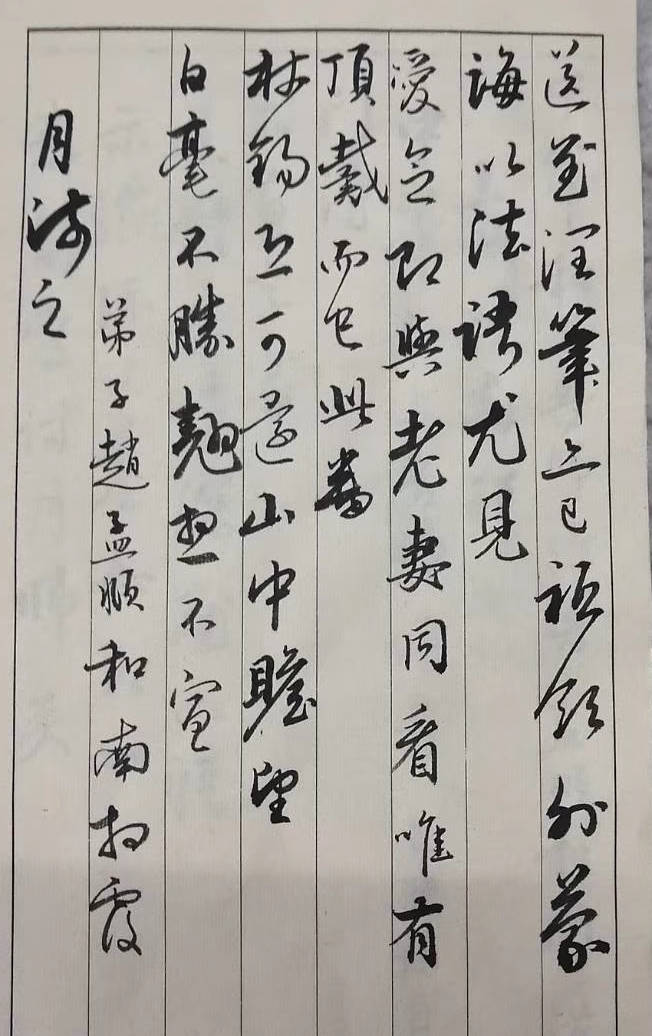 送至润筆亦已祗領外蒙
誨以法語尤見
愛念即與老妻同看唯有
頂戴而已此番
杖錫恐可還山中瞻望
白毫不勝翹想不宣
弟子趙孟頫和南拜覆
月湾之